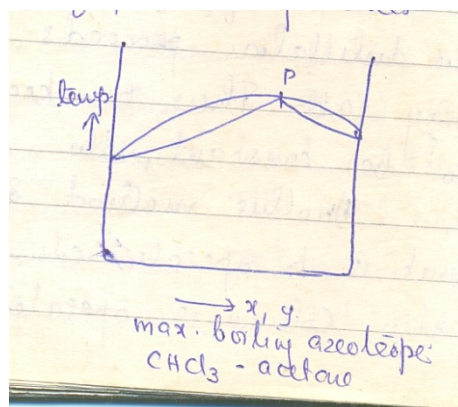 P
temp
x, y
max. boiling azeotrope:
CHCl3 - acetone